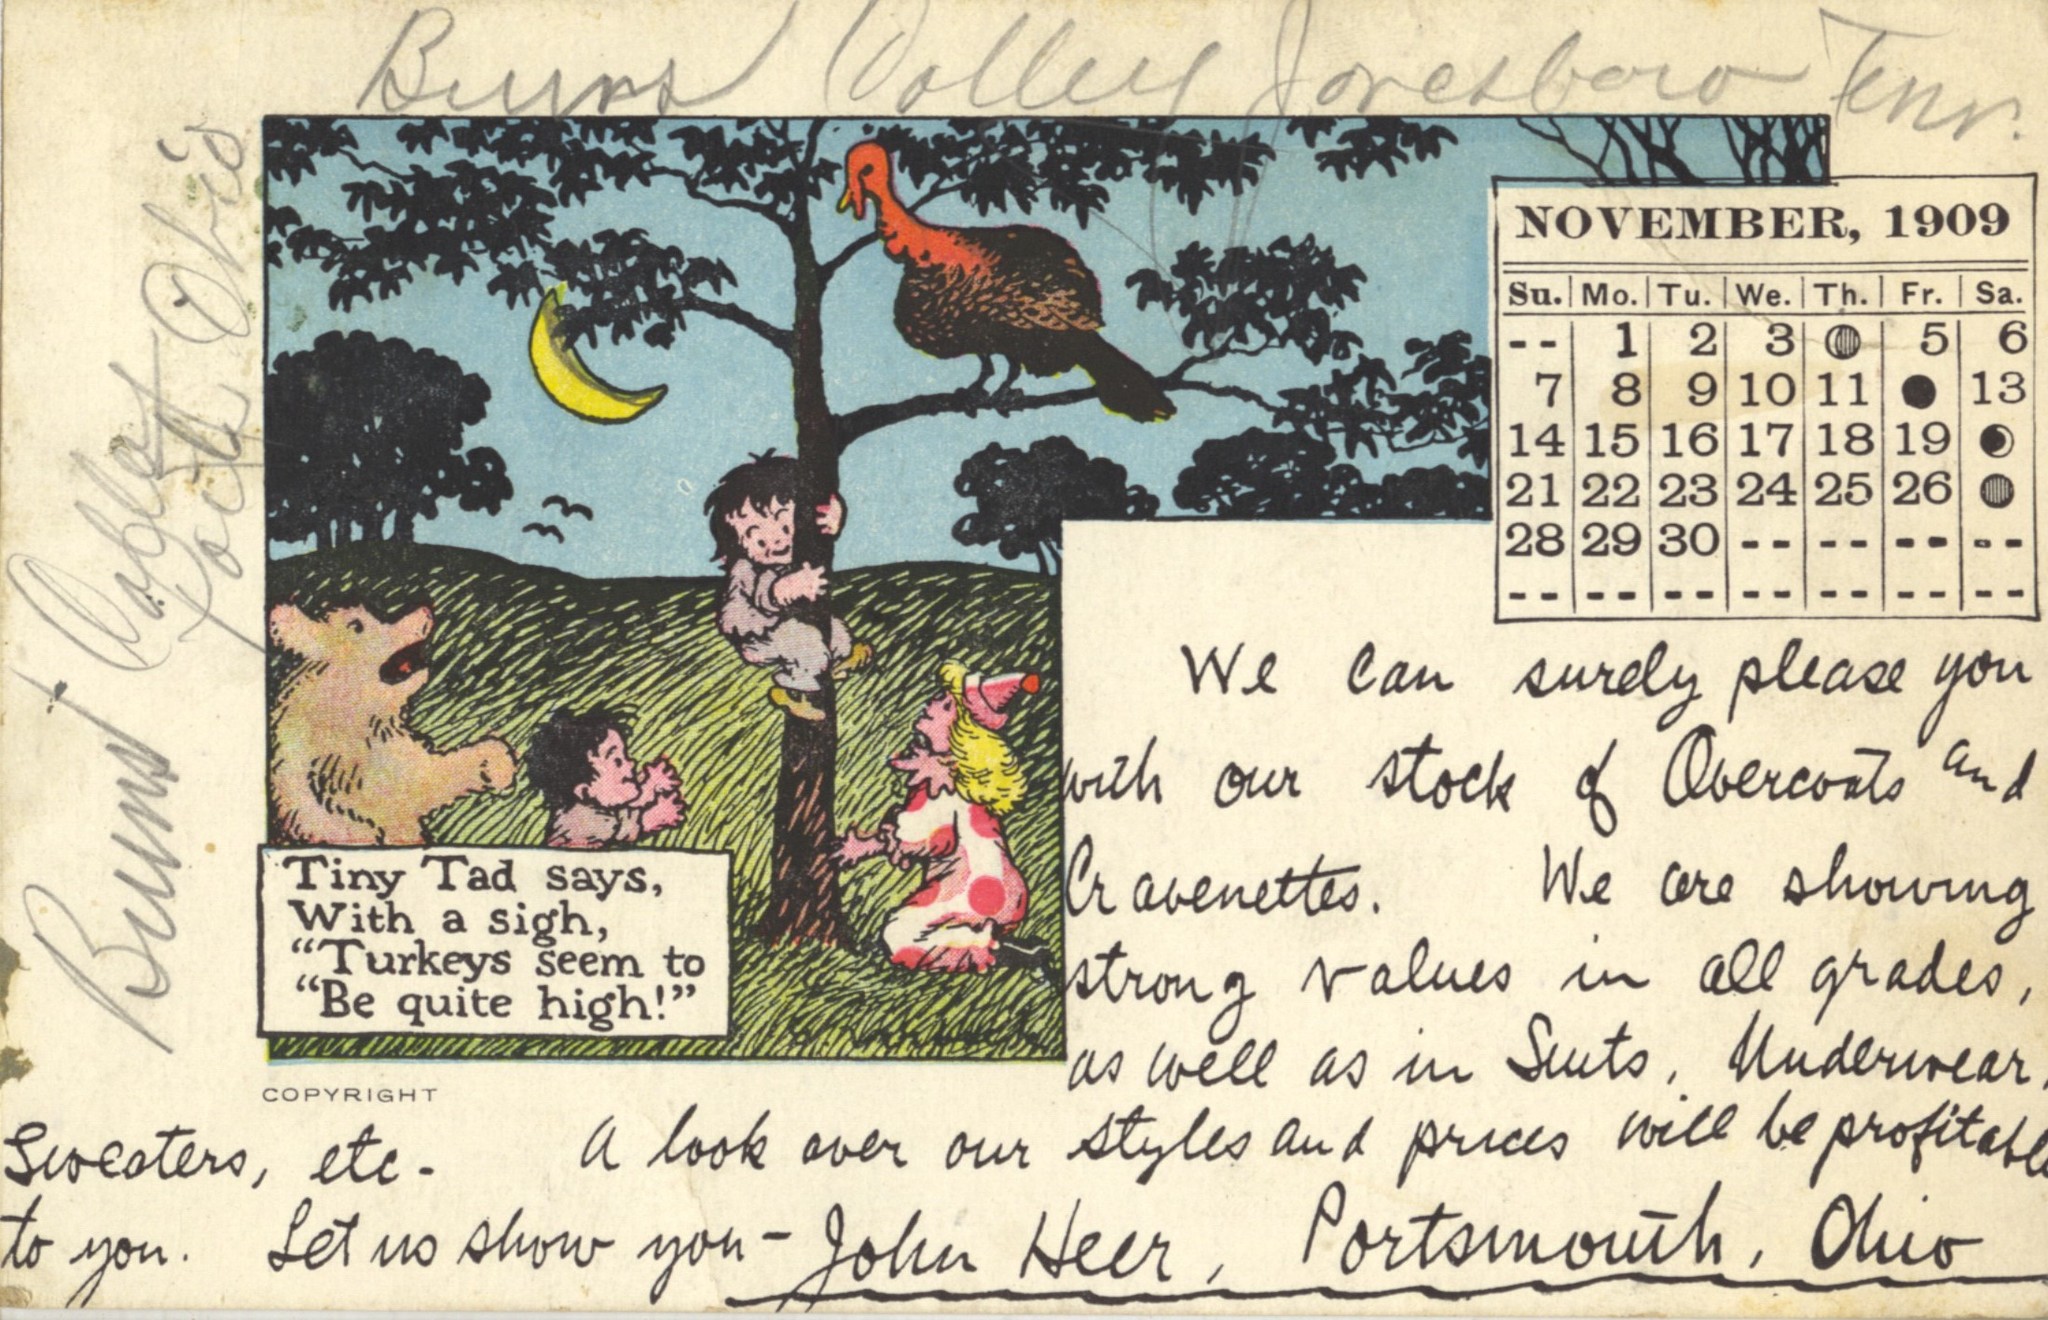 Burns Volley Jonesboro Tenn.
NOVEMBER, 1909
Su. Mo. Tu. We. Th. Fr. Sa.
-- 1 2 3 5 6
7 8 9 10 11 13
14 15 16 17 18 19
21 22 23 24 25 26
28 29 30 -- -- -- --
-- -- -- -- -- -- --
We can surely please you
with our stock of Overcoats and
Cravenettes. We are showing
strong values in all grades,
as well as in Suits, Underwear,
Sweaters, etc- A look over our styles and prices will be profitable
to you. Let us show you- John Heer, Portsmouth, Ohio
Tiny Tad says,
With a sigh,
"Turkeys seem to
"Be quite high!"
COPYRIGHT
Ohio